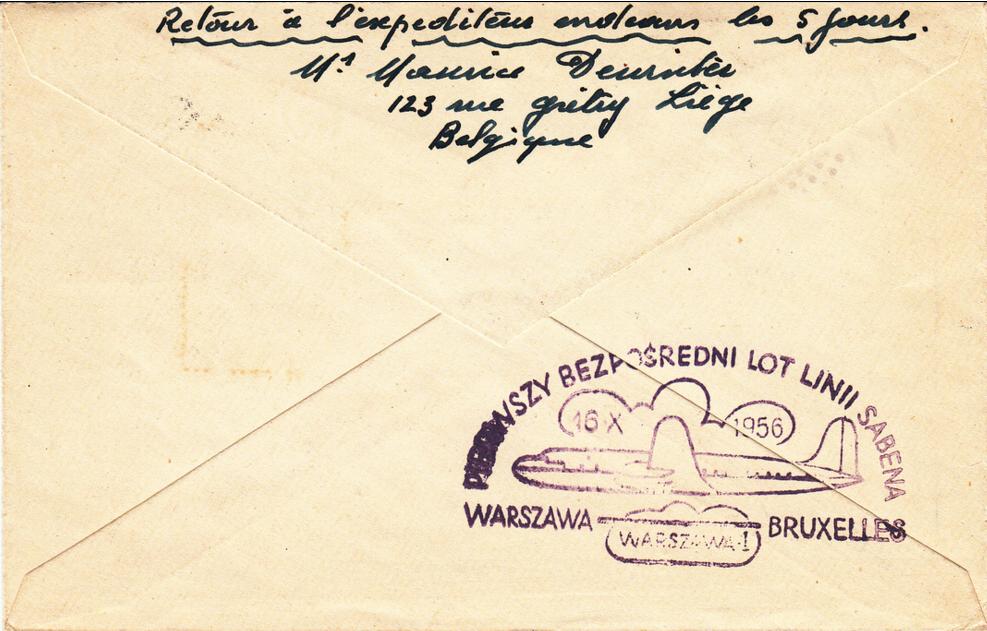 Retour à l'expediteur endeans les 5 jours.
Mr Maurice
123 rue grétry Liège
Belgique
PIERWSZY BEZPOŚREDNI LOT LINII SABENA
16 X 1956
WARSZAWA BRUXELLES
WARSZAWA 1